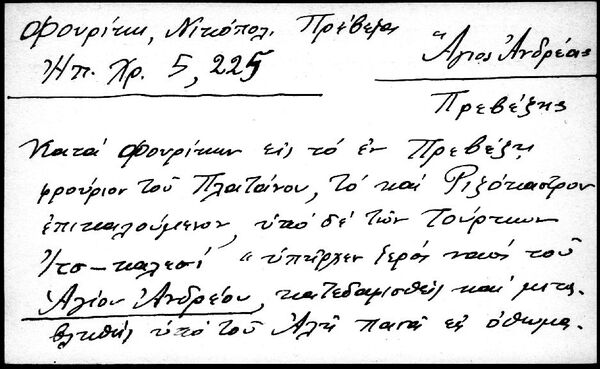 Φουρίκη, Νικόπολ. Πρέβεζα
Ἠπ. Χρ. 5, 225
Ἅγιος Ἀνδρέας
Πρεβέζης
Κατά Φουρίκην εἰς τό ἐν Πρεβέζῃ
φρούριον τοῦ Πλατάνου, τό καί Ριζόκαστρον
ἐπικαλούμενον, ὑπό δέ τῶν Τούρκων
Ἰτσ-καλεσί "ὑπῆρχεν ἱερός ναός τοῦ
Ἁγίου Ἀνδρέου, κατεδαφισθείς καί μετα-
βληθείς ὑπό τοῦ Ἀλῆ πασᾶ εἰς ὀθωμα-